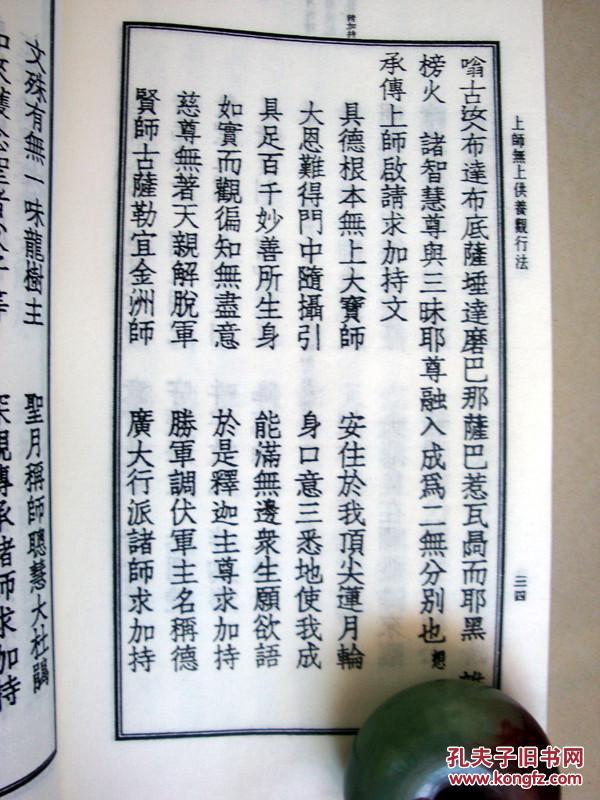 上師無上供養觀行法
三四
嗡古汝布達布底薩埵達磨巴那薩巴惹瓦咼而耶黑
榜火　諸智慧尊與三昧耶尊融入成爲二無分別也
承傳上師啟請求加持文
具德根本無上大寶師　安住於我頂尖蓮月輪
大恩難得門中隨攝引　身口意三悉地使我成
具足百千妙善所生身　能滿無邊衆生願欲語
如實而觀徧知無盡意　於是釋迦主尊求加持
慈尊無著天親解脫軍　勝軍調伏軍主名稱德
賢師古薩勒宜金洲師　廣大行派諸師求加持
文殊有無一味龍樹主　聖月稱師聰慧大杜鵑
深觀傳承諸師求加持
孔夫子旧书网
www.kongfz.com